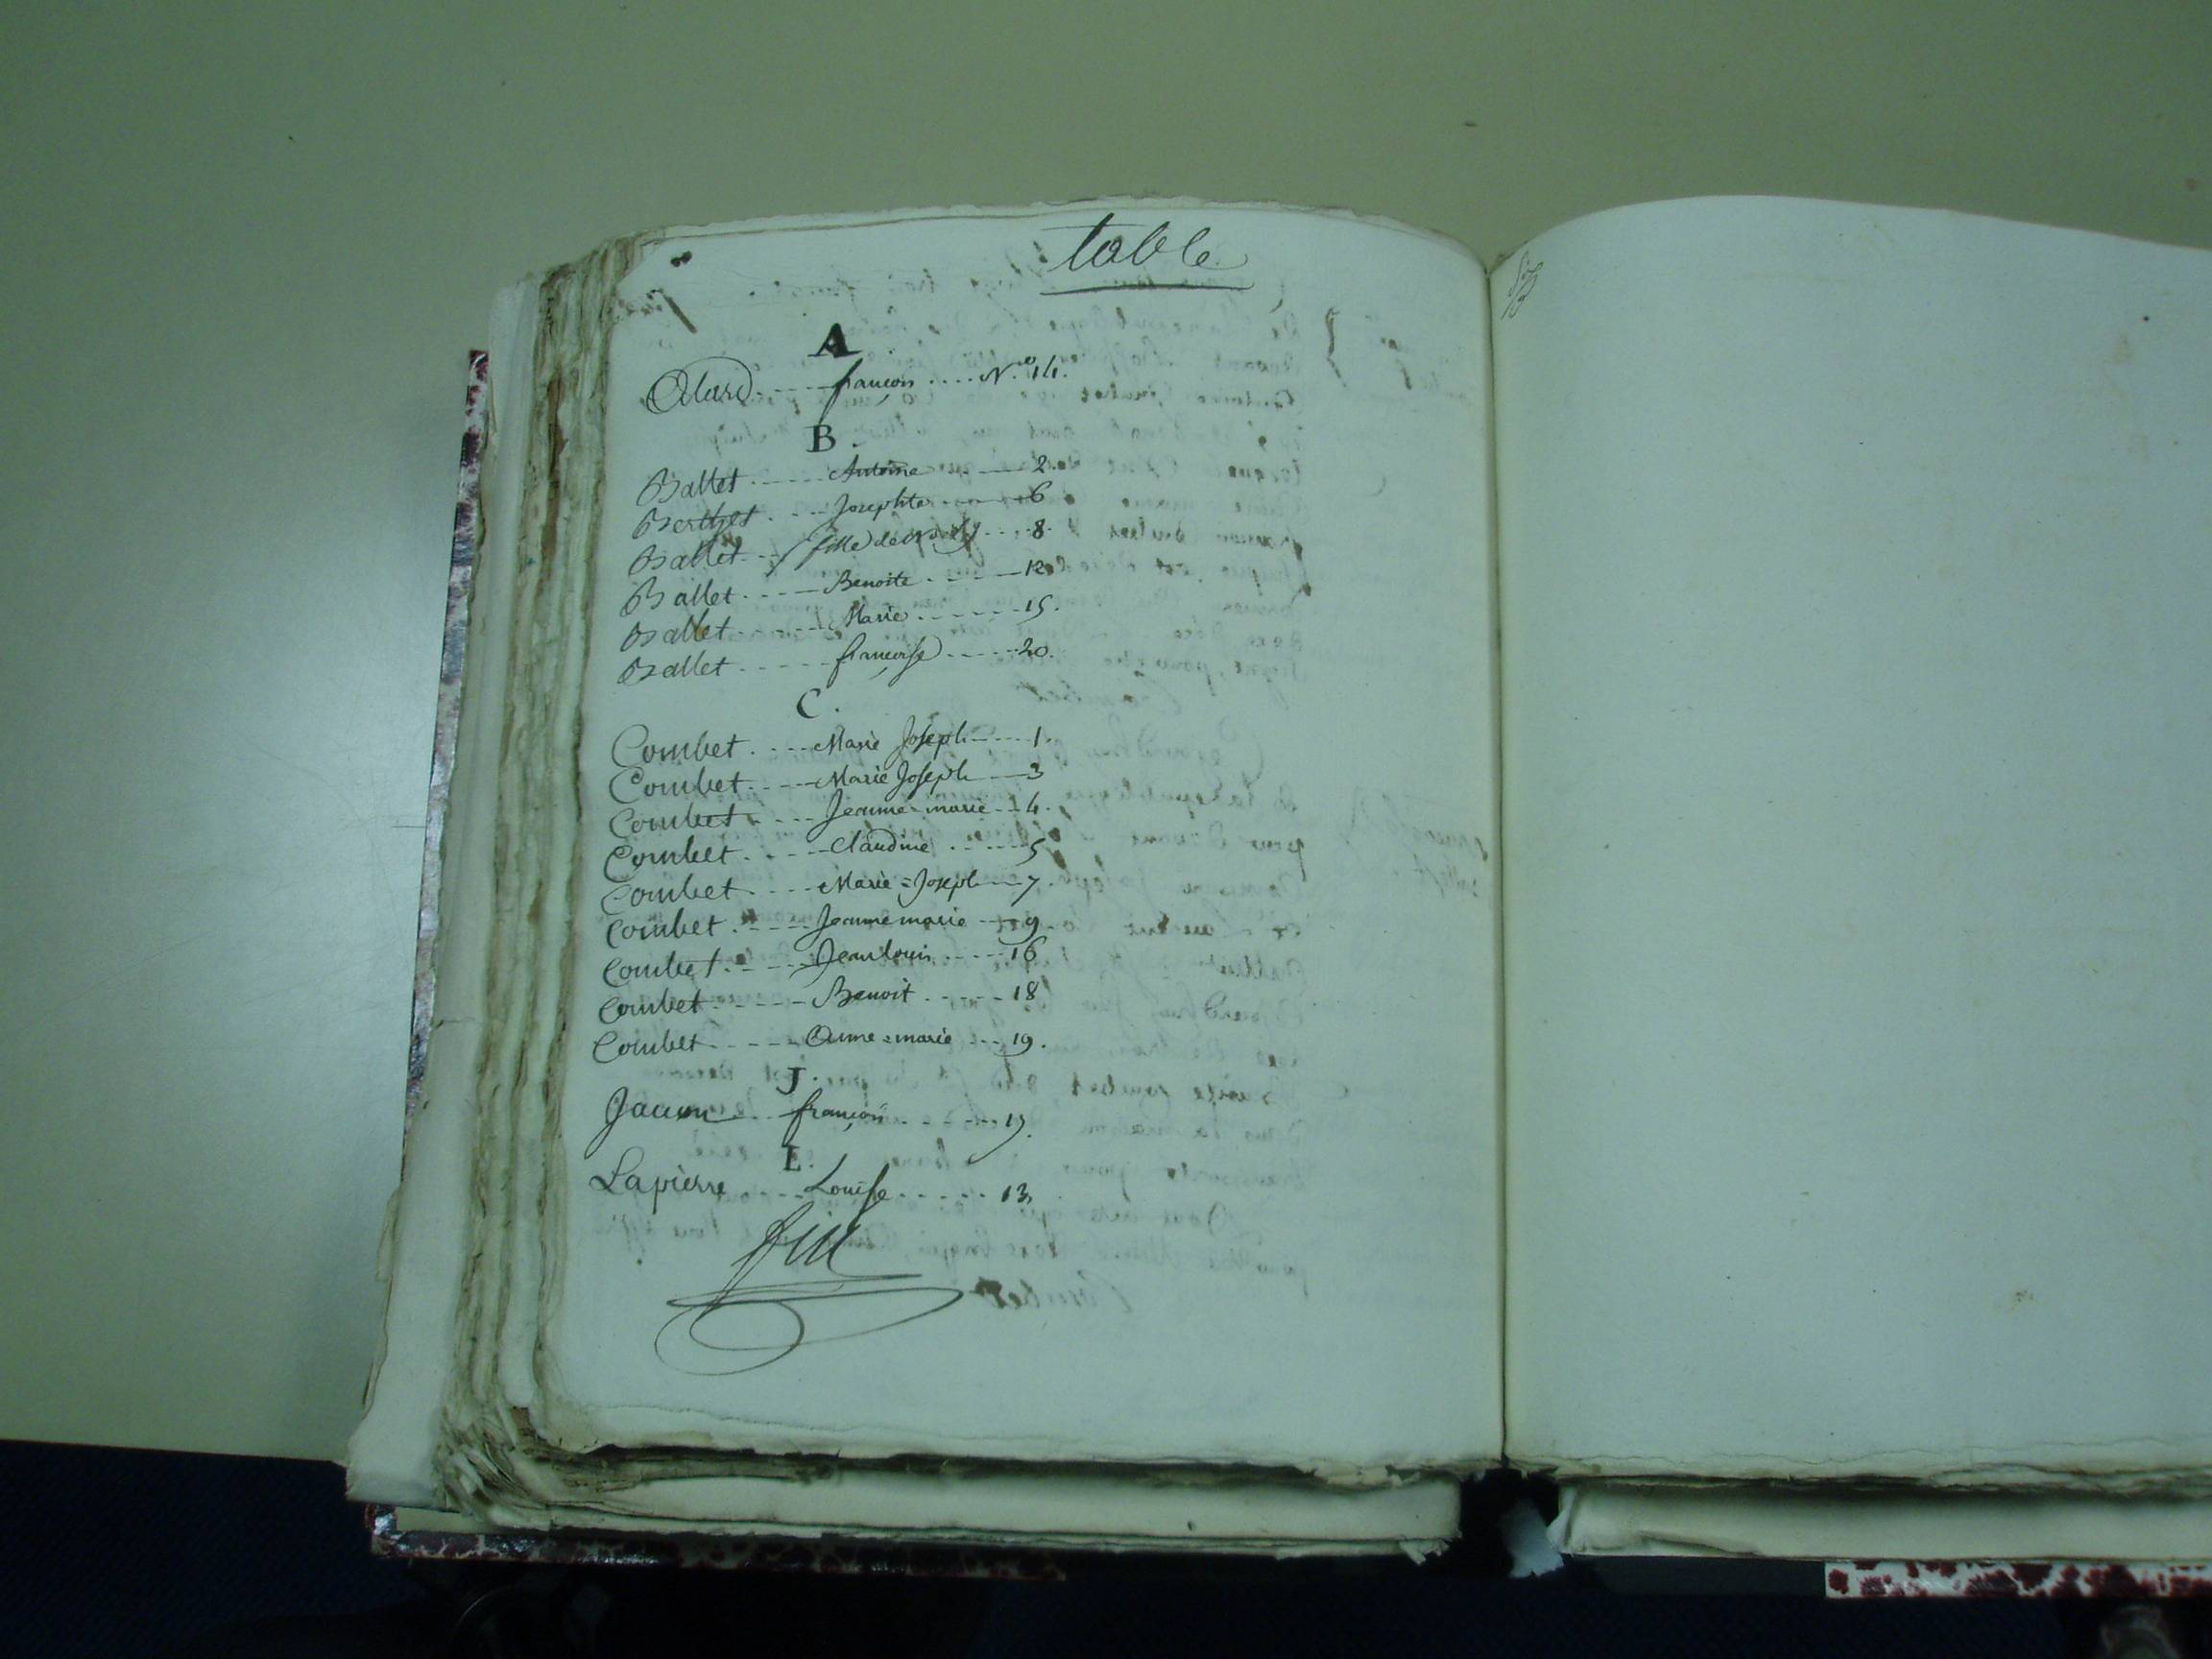 table
A
Alard françois N.o 14.
B.
Ballet Antoine 2.
Berthet Josephte 6
Ballet fille de 8.
Ballet Benoite 12
Ballet Marie 15.
Ballet françoise 20.
C.
Combet Marie Joseph 1.
Combet Marie Joseph 3
Combet Jeanne-marie 4.
Combet Claudine 5
Combet Marie=Joseph 7.
Combet Jeanne marie 9
Combet Jean louis 16
Combet Benoit 18
Combet Anne=marie 19.
J.
françois 17.
L.
Lapierre Louise 13.
fin